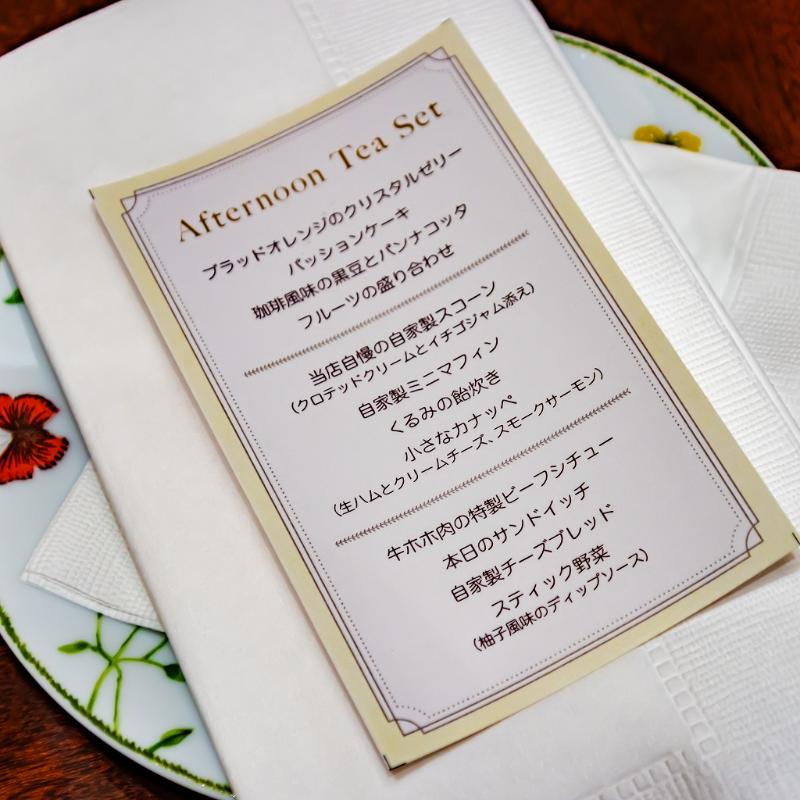 Afternoon Tea Set
ブラッドオレンジのクリスタルゼリー
パッションケーキ
珈琲風味の黒豆とパンナコッタ
フルーツの盛り合わせ
当店自慢の自家製スコーン
(クロテッドクリームとイチゴジャム添え)
自家製ミニマフィン
くるみの飴炊き
小さなカナッペ
(生ハムとクリームチーズ、スモークサーモン)
牛ホホ肉の特製ビーフシチュー
本日のサンドイッチ
自家製チーズブレッド
スティック野菜
(柚子風味のディップソース)